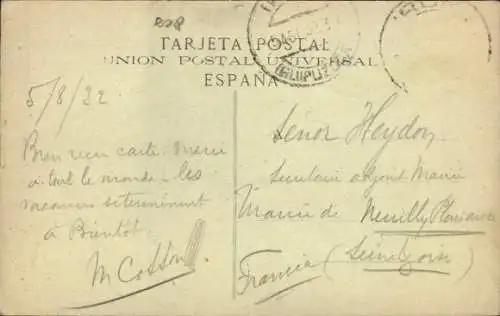 TARJETA POSTAL
UNION POSTAL UNIVERSAL
ESPAÑA
5/8/22
Bien reçu carte Merci
à tout le monde - les
vacances se terminent
à Bientôt.
M Cosson
Senor Heydon
Secretaire adjoint Mairie
Mairie de Neuilly Plaisance
(Seine et Oise)
Francia